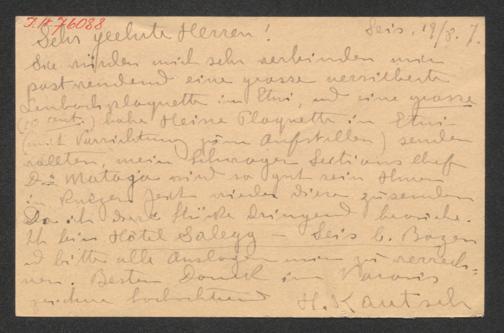 J.N 76088
Sehr geehrte Herren! Seis, 19/8. 7.
Sie würden mich sehr verbinden mir
postwendend eine grosse versilberte
Lenbachplaquette im Etui, und eine grosse
hohe Heine Plaquette in Etui
(mit Vorrichtung zum Aufstellen) senden
wollten, mein Schwager Sections Chef
Dr Mataja wird so gut sein Ihnen
in kurzem Zeit wieder diese zusenden
Da ich diese Stücke dringend brauche.
Ich bin Hôtel Salegg – Seis b. Bozen
und bitte alle Auslagen mir zu verrech-
nen. Besten Dank im Voraus
zeichne hochachtend H. Kautsch